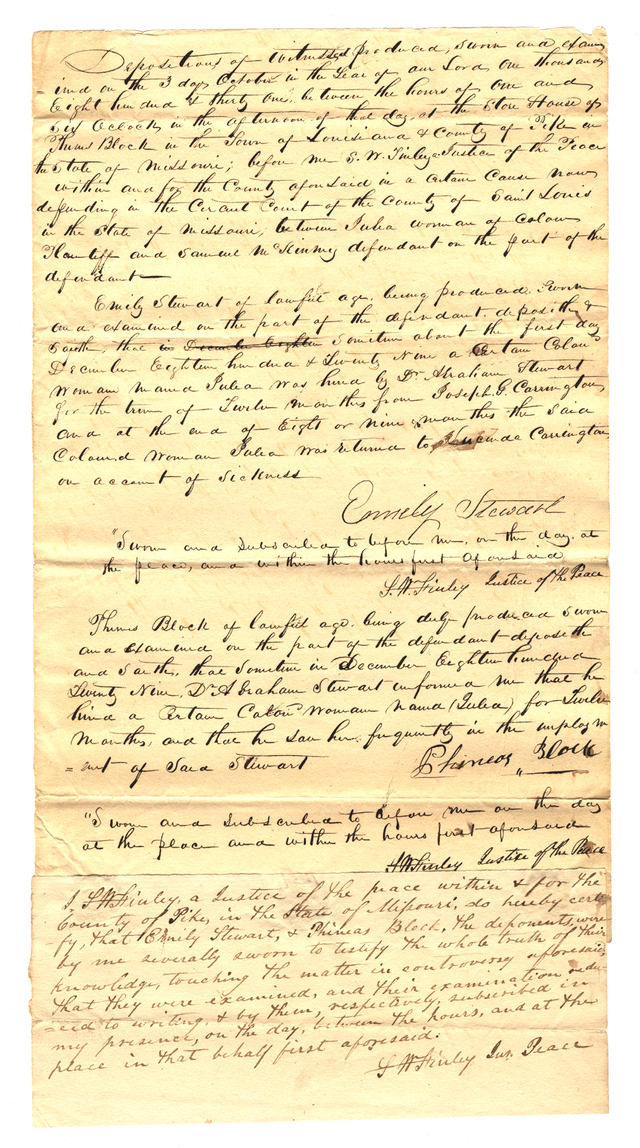 Depositions of Witnesses produced, sworn and exam
=ined on the 3 day October in the Year of our Lord One thousand
Eight hundred & thirty one, between the hours of One and
Six Oclock in the afternoon of that day, at the Store House of
Phineas Block in the Town of Louisiana & County of Pike in
the State of Missouri; before me S. W. Finley Justice of the Peace
within and for the County aforesaid in a certain Cause now
depending in the Circuit Court of the County of Saint Louis
in the State of Missouri, between Julia woman of Colour
Plaintiff and Samuel McKinney defendant on the part of the
defendant
Emily Stewart of lawful age, being produced, Sworn
and examined on the part of the defendant, deposeth &
saith, that in December Eighteen Sometime about the first day
December Eighteen hundred & Twenty Nine a Certain Colourd
Woman named Julia was hired by Dr Abraham Stewart
for the term of Twelve months from Joseph G. Carrington,
and at the end of Eight or nine months the said
Coloured Woman Julia was returned to Lucinda Carrington
on account of Sickness
Emily Stewart
"Sworn and subscribed to before me, on the day, at
the place, and within the hours first aforesaid
S. W. Finley Justice of the Peace
Phineas Block of lawful age, being duly produced Sworn
and examined on the part of the defendant deposeth
and Saith, that Sometime in December Eighteen hundred
Twenty Nine, Dr Abraham Stewart informed me that he
hired a Certain Colourd Woman Named (Julia) for Twelve
Months, and that he saw her frequently in the employm
=ent of Said Stewart
Phineas Block
"Sworn and subscribed to before me on the day
at the place and within the hours first aforesaid
S W Finley Justice of the Peace
I S W Finley, a Justice of the peace within & for the
County of Pike, in the State of Missouri, do hereby certi
fy, that Emily Stewart, & Phineas Block, the deponents, were
by me severally sworn to testify the whole truth of their
knowledge, touching the matter in controversy aforesaid,
that they were examined, and their examination redu
=ced to writing, & by them, respectively, subscribed in
my presence, on the day, between the hours, and at the
place in that behalf first aforesaid.
S W Finley Jus. Peace